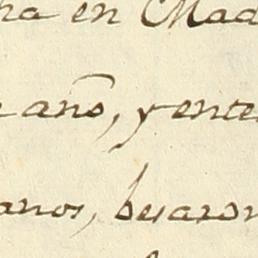 ha en Mad
e año, y ente
anos, besaron